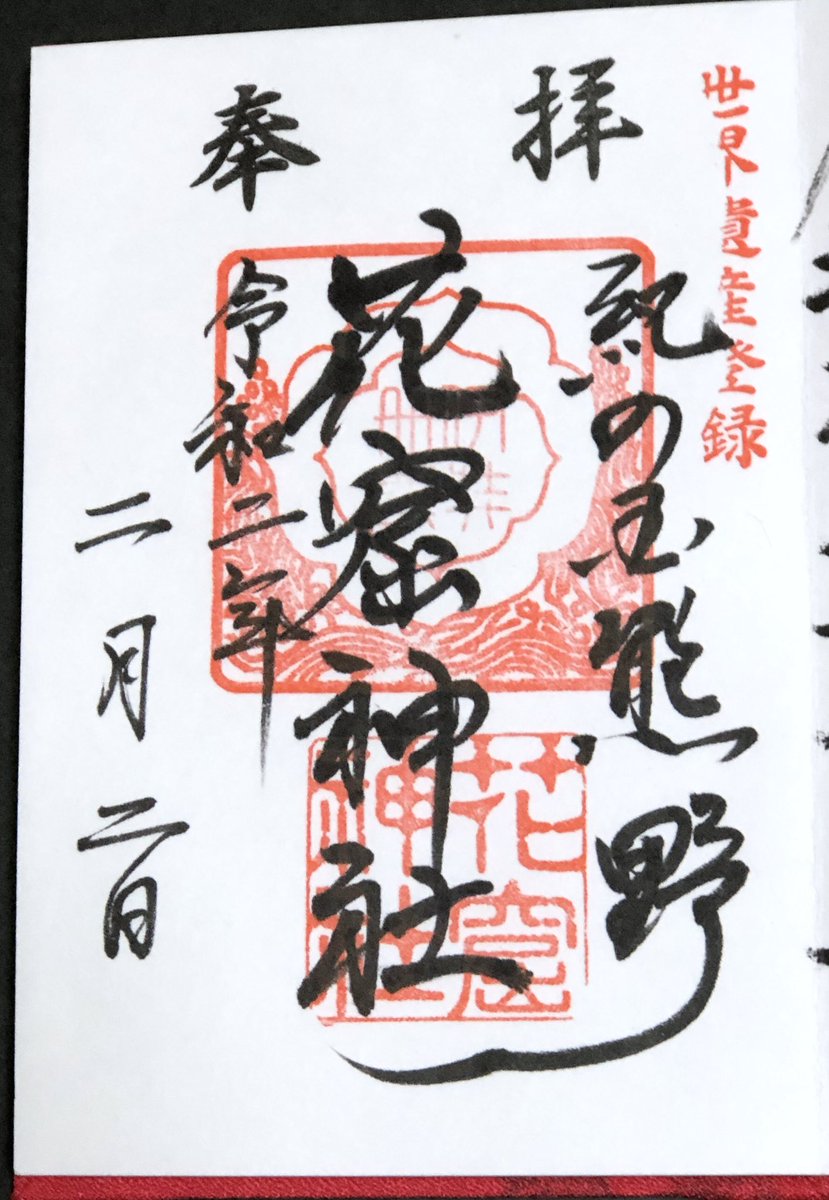 世界遺産登録
奉拝
紀の国熊野
花窟神社
令和二年
二月二日
花窟神社